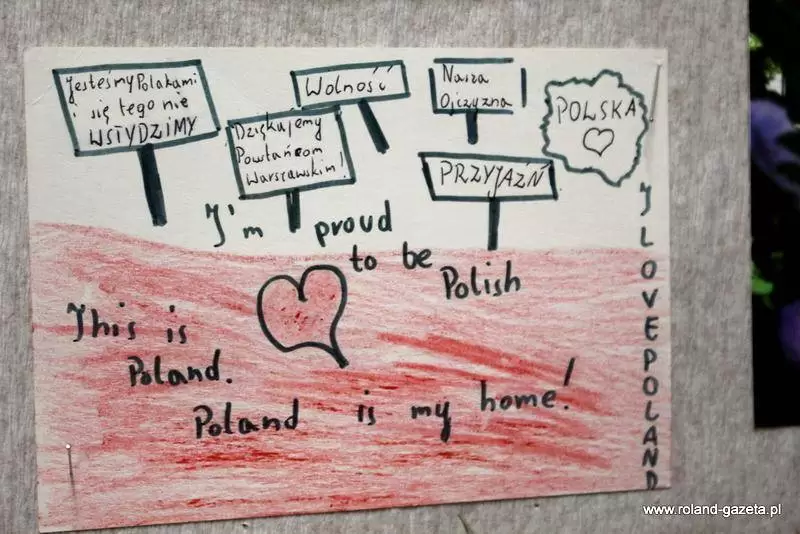 Jesteśmy Polakami
i się tego nie
WSTYDZIMY
Dziękujemy
Powstańcom
Warszawskim!
Wolność
Nasza
Ojczyzna
PRZYJAŹŃ
POLSKA
I'm proud
to be
Polish
This is
Poland.
Poland is my home!
I LOVE POLAND
www.roland-gazeta.pl